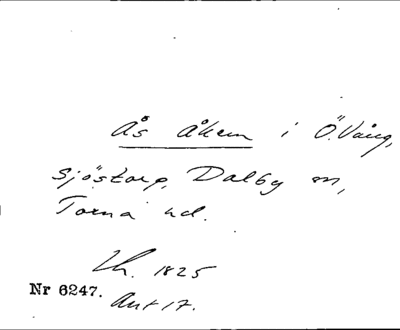 Ås åkern i Ö. Vång,
Sjöstorp, Dalby sn,
Torna hd.
Lh. 1825
Nr 6247.
Ant 17.